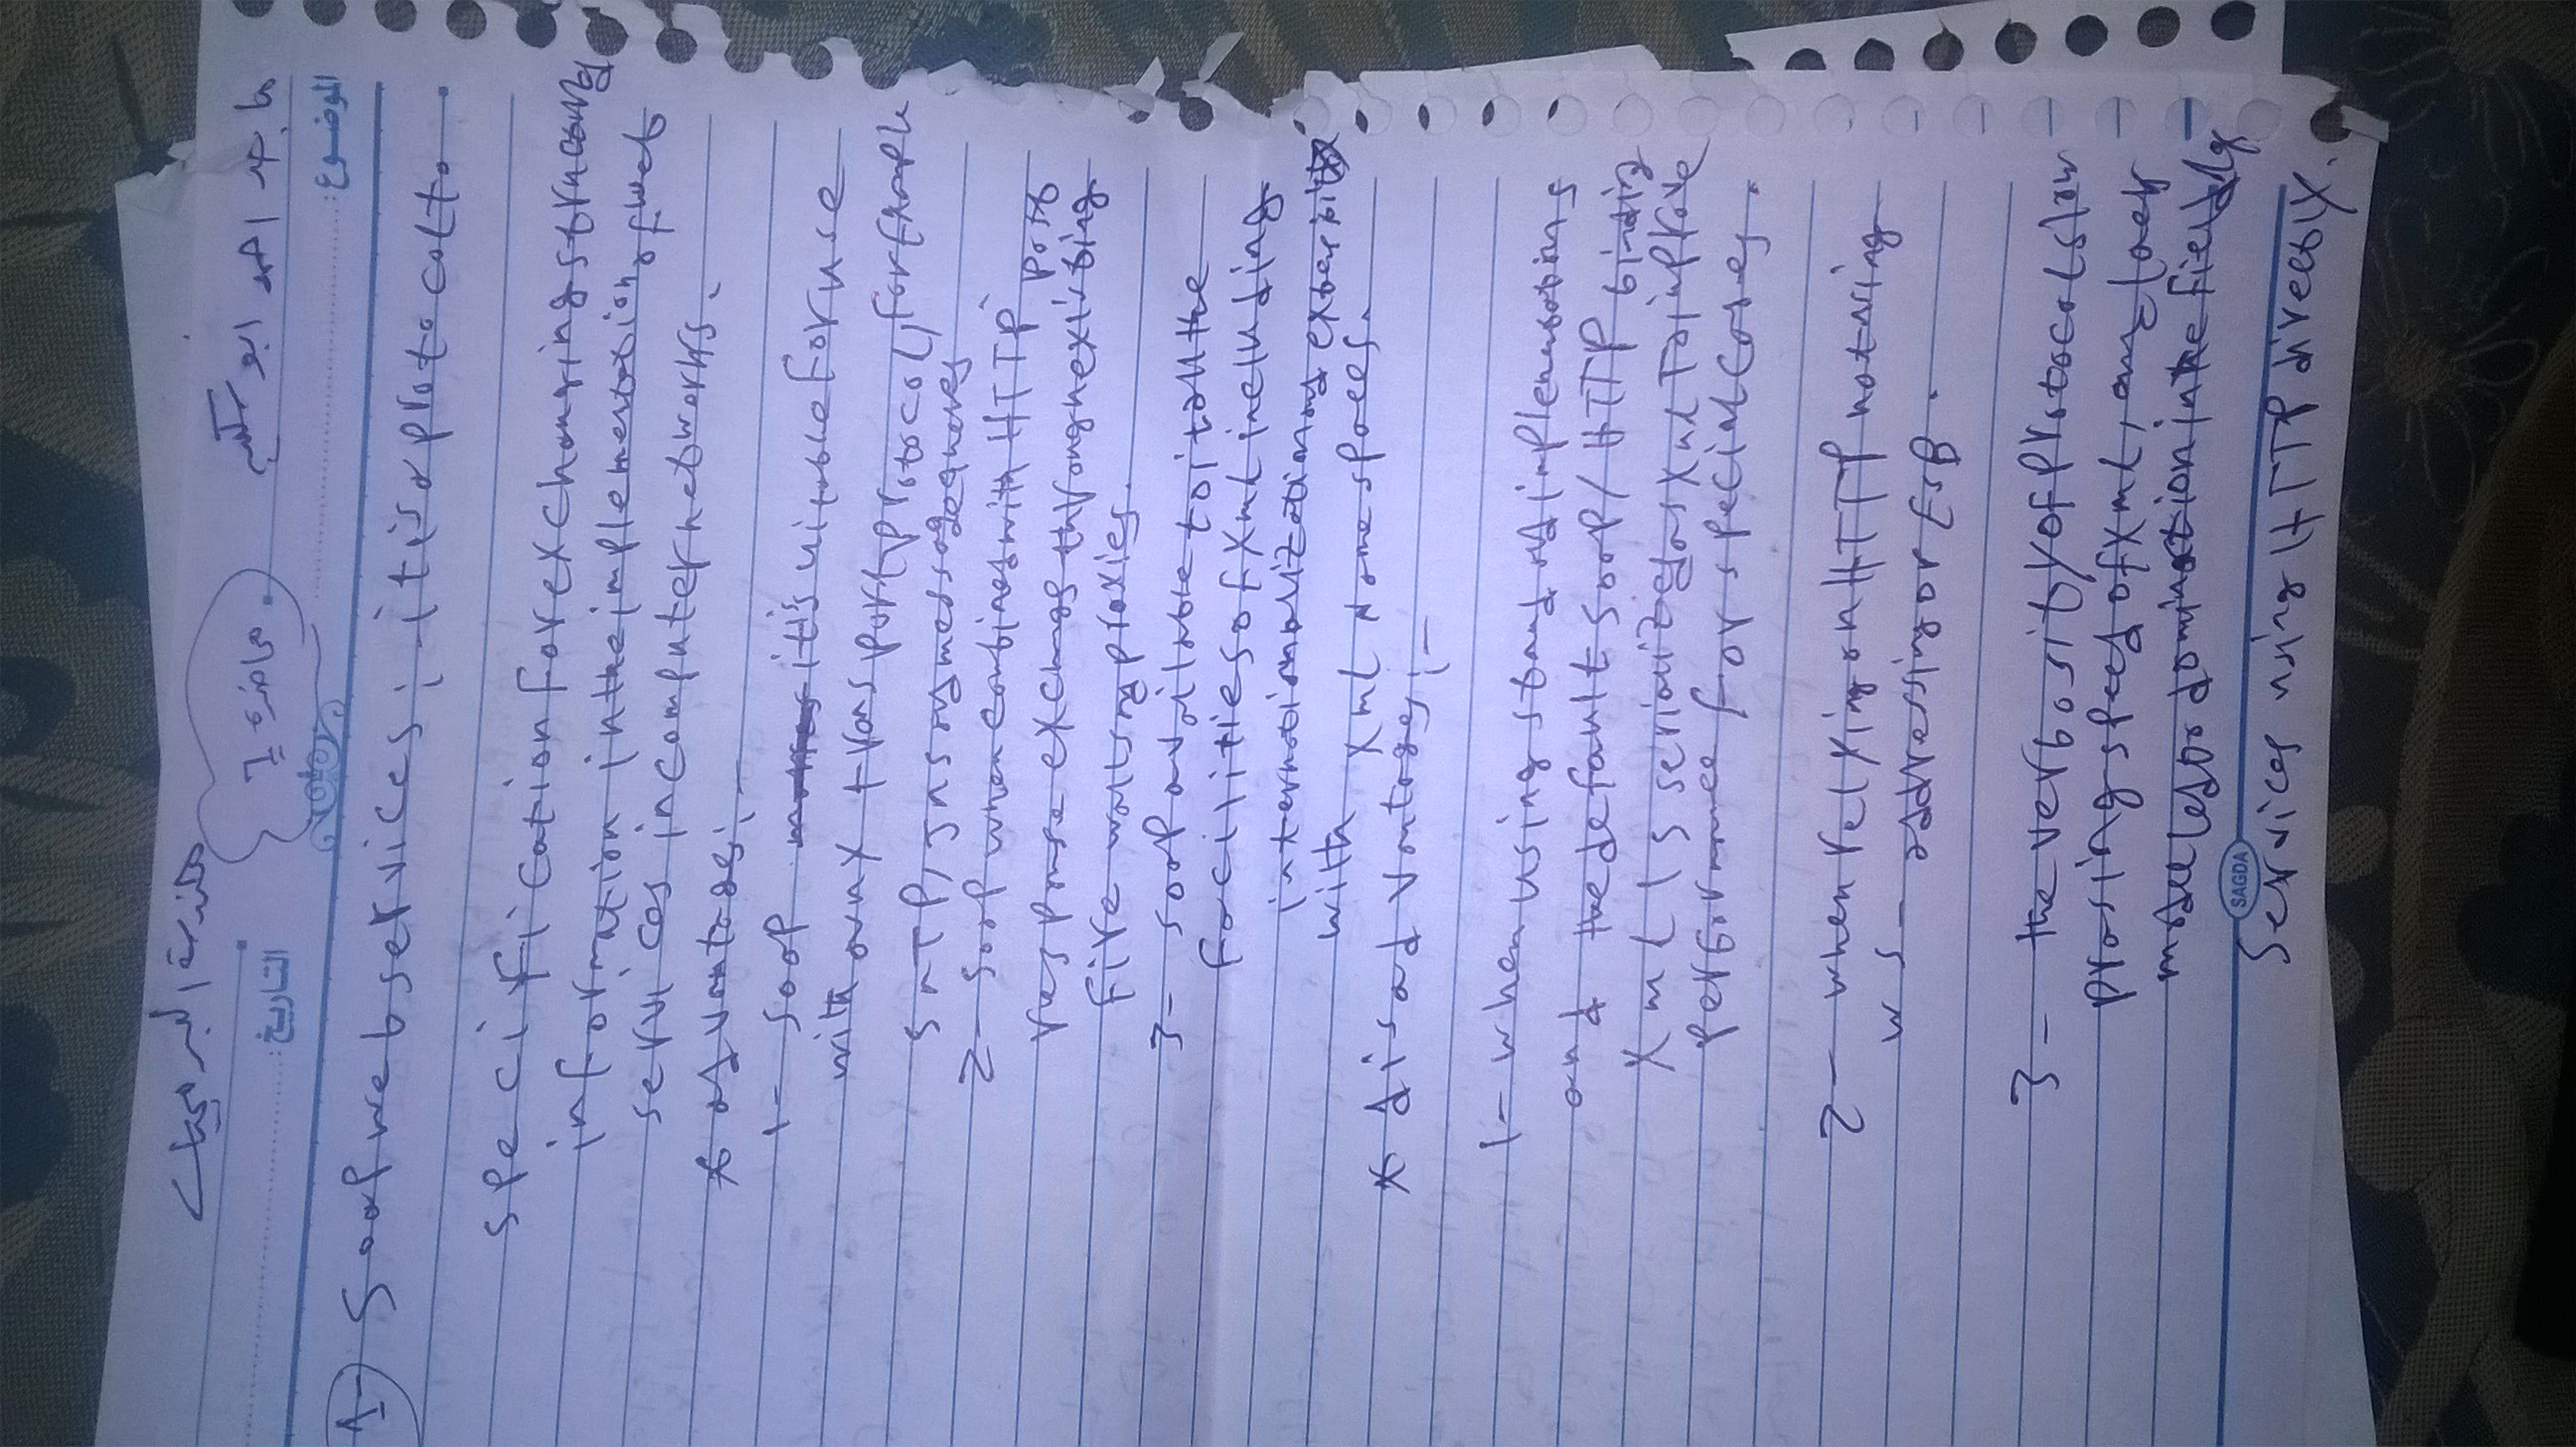 هندسة البرمجيات
ماجد احمد ابو سكينه
محاضره 6
التاريخ:
الموضوع:
1- Soap web services : it is a protocol to
specification for exchanging structured
information in the implementation of web
services in computer networks.
* advantages :-
1- Soap it is suitable for use
with any transport protocol, for Example
SMTP, JMS and message queues
2- Soap when combined with HTTP post
response exchange through existing
fire walls and proxies.
3- soap available to it all the
facilities of xml including
internationalization and extensibility
with xml Name spaces.
* disad vantages :-
1- when using standard implementations
and the default soap / HTTP binding
Xml is serialized as xml To improve
performance for special cases.
2- when relying on HTTP not using
WS- addressing or ESB.
3- the verbosity of protocol slow
prossing speed of xml, and lack
model for domination in the field
Services using HTTP directly.
SAGDA